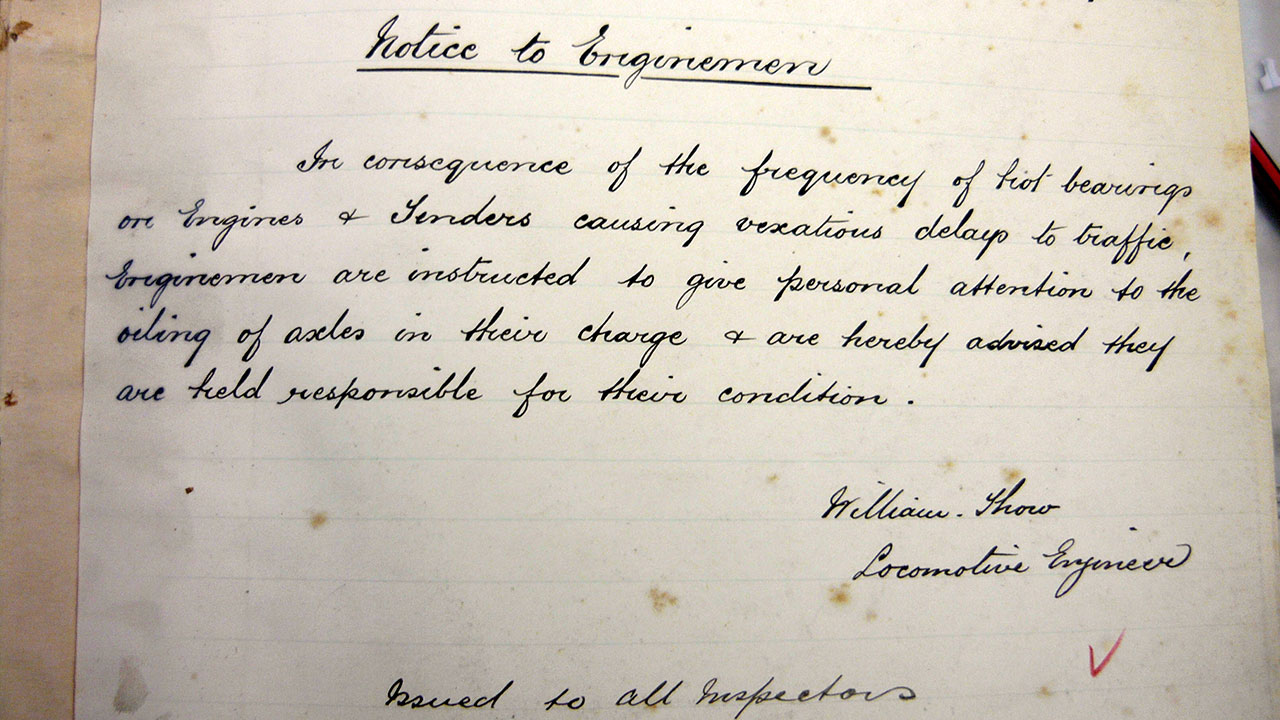 Notice to Enginemen
In consequence of the frequency of hot bearings
on Engines & Tenders causing vexatious delays to traffic,
Enginemen are instructed to give personal attention to the
oiling of axles in their charge & are hereby advised they
are held responsible for their condition.
William. Thow
Locomotive Engineer
Issued to all Inspectors